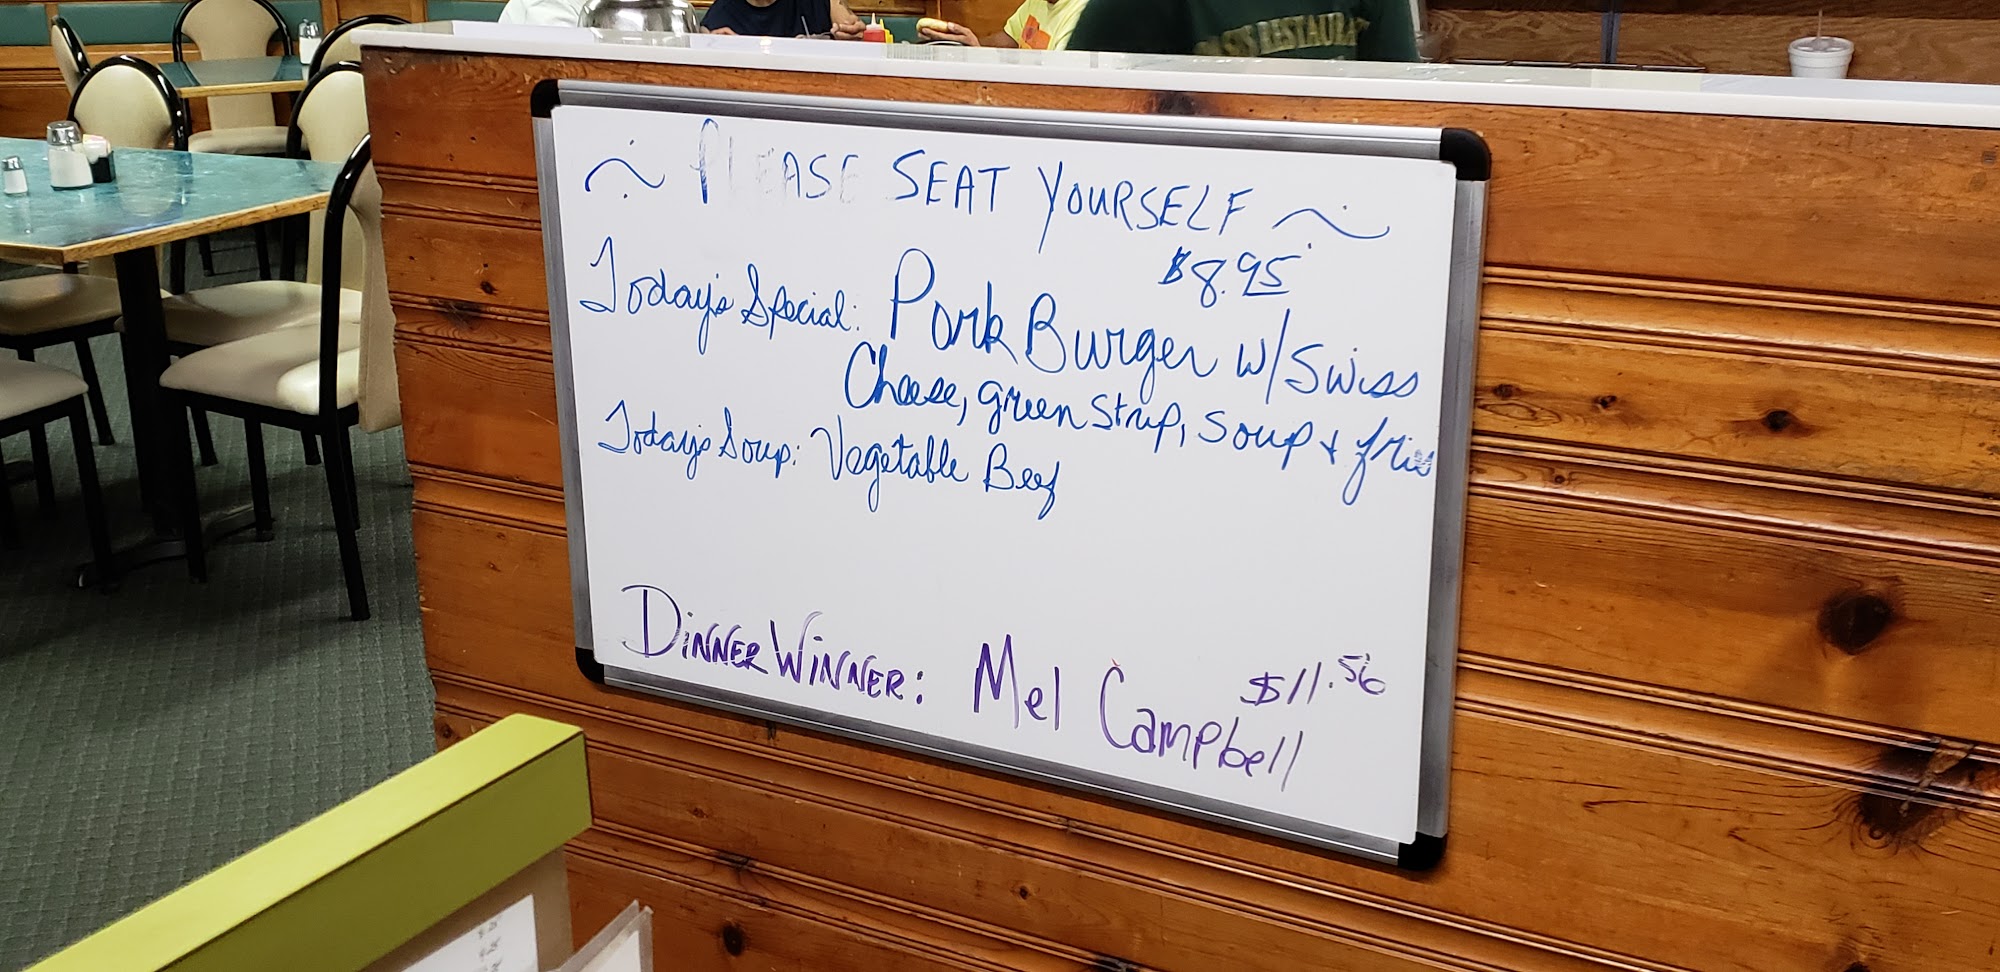 RESTAURA
~ PLEASE SEAT YOURSELF ~
$8.95
Today's Special: Pork Burger w/ Swiss
Cheese, green strip, soup + fries
Today's Soup: Vegetable Beef
DINNER WINNER: Mel Campbell
$11.56